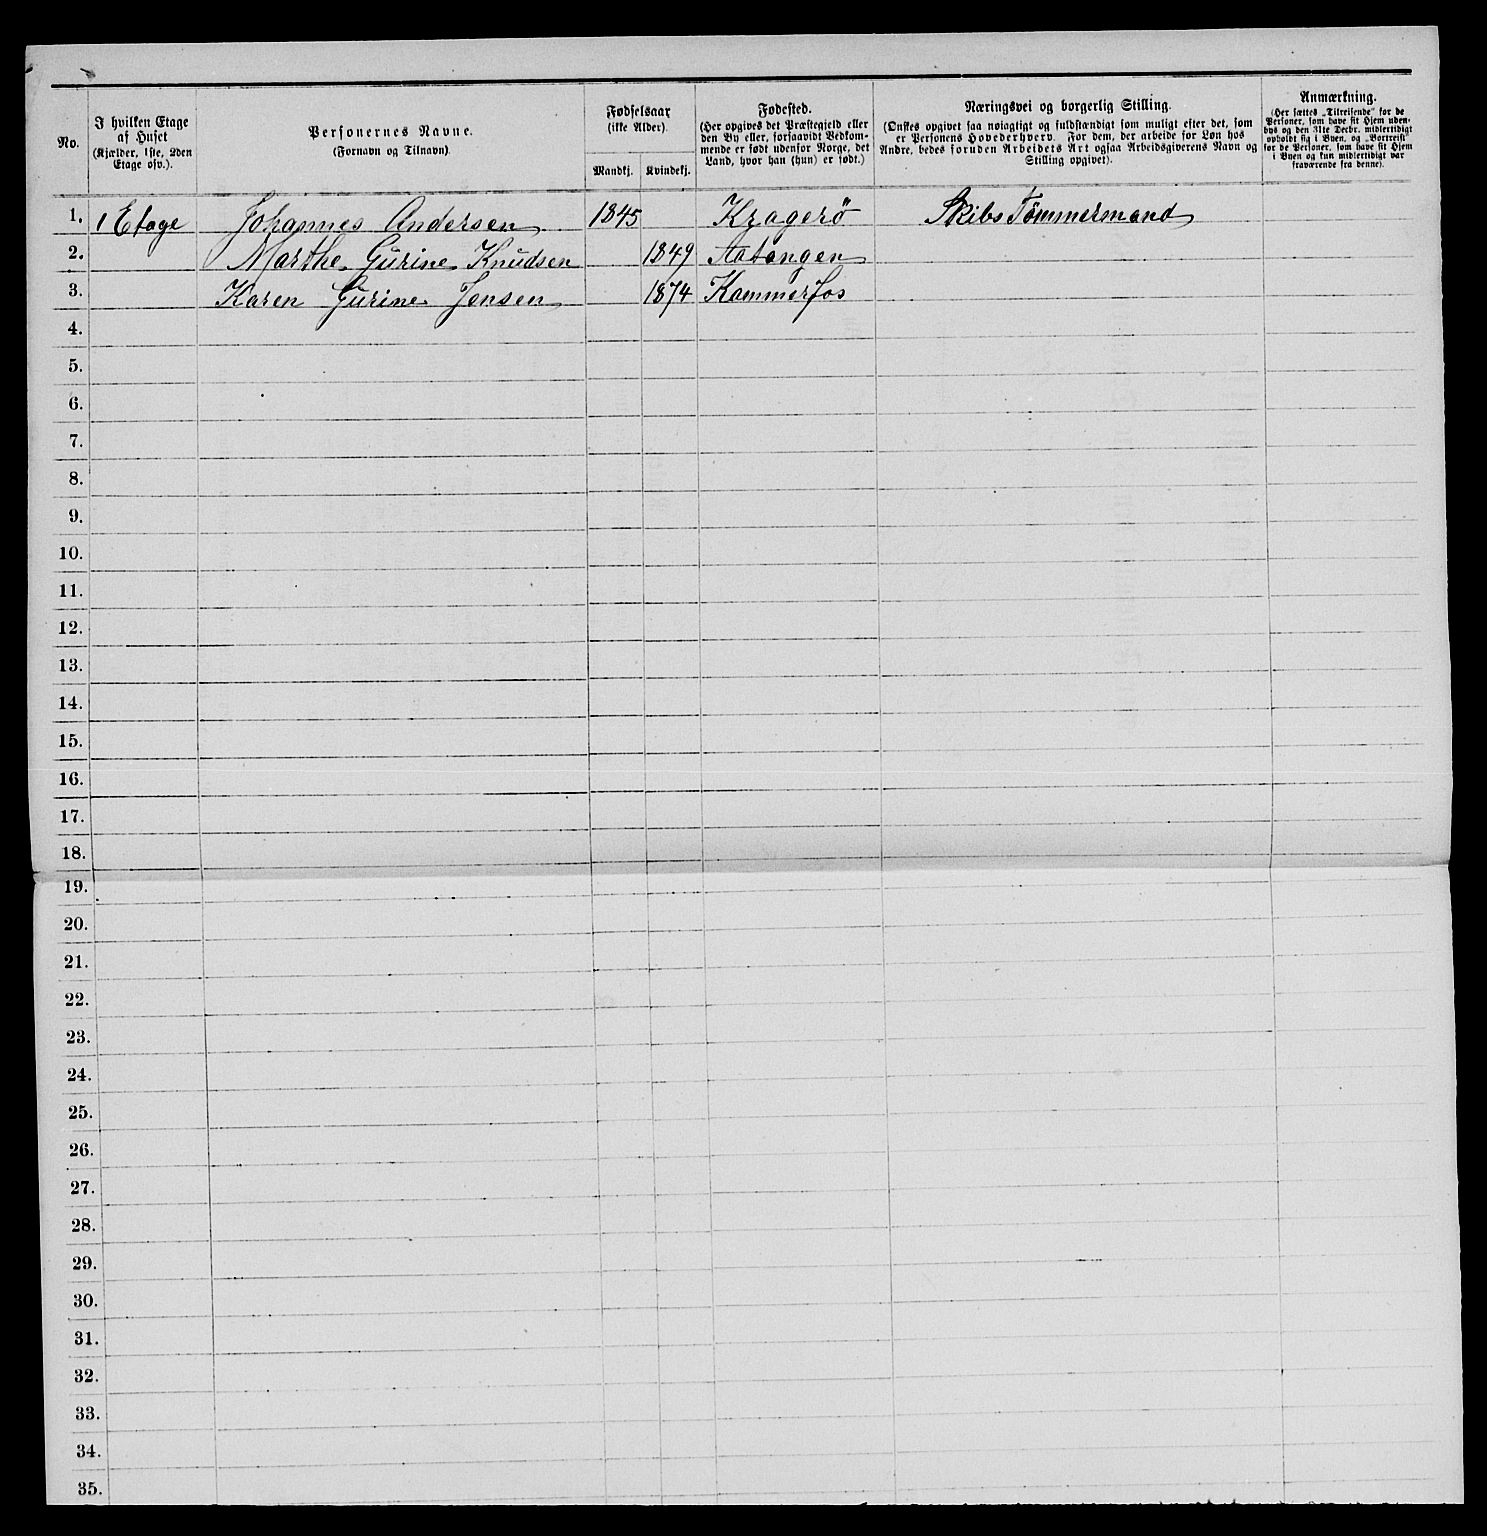 No.
I hvilken Etage
af Huset
(Kjælder, 1ste, 2den
Etage osv.).
Personernes Navne.
(Fornavn og Tilnavn).
Fødselsaar
(ikke Alder).
Mandkj. Kvindekj.
Fødested.
(Her opgives det Præstegjeld eller
den By eller, forsaavidt Vedkom-
mende er født udenfor Norge, det
Land, hvor han (hun) er født.)
Næringsvei og borgerlig Stilling.
(Ønskes opgivet saa nøiagtigt og fuldstændigt som muligt efter det, som
er Personens Hovederhverv. For dem, der arbeide for Løn hos
Andre, bedes foruden Arbeidets Art ogsaa Arbeidsgiverens Navn og
Stilling opgivet).
Anmærkning.
(Her sættes „Tilreisende" for de
Personer, som have sit Hjem uden-
bys og den 31te Decbr. midlertidigt
opholdt sig i Byen, og „Bortreist"
for de Personer, som have sit Hjem
i Byen og kun midlertidigt var
fraværende fra denne).
1. 1 Etage Johannes Andersen 1845 Kragerö Skibs Tömmermand
2. Marthe Gurine Knudsen 1849 Aatangen
3. Karen Gurine Jensen 1874 Kammerfos
4.
5.
6.
7.
8.
9.
10.
11.
12.
13.
14.
15.
16.
17.
18.
19.
20.
21.
22.
23.
24.
25.
26.
27.
28.
29.
30.
31.
32.
33.
34.
35.